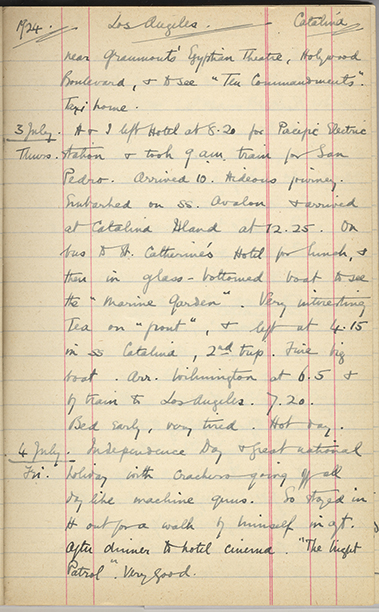 1924. Los Angeles. Catalina
near Graumonts' Egyptian Theatre, Holywood
Boulevard, & to see "Ten Commandments".
Taxi home.
3 July. H & I left Hotel at 8.20 for Pacific Electric
Thurs. Station & took 9 am train for San
Pedro. Arrived 10. Hideous journey.
Embarked on ss. Avalon & arrived
at Catalina Island at 12.25. On
bus to St. Catherine's Hotel for lunch, &
then in glass-bottomed boat to see
the "Marine Garden". Very interesting
Tea on "front", & left at 4.15
in ss Catalina, 2nd trip. Fine big
boat. Arr. Wilmington at 6.5 &
by train to Los Angeles. 7.20.
Bed early, very tired. Hot day.
4 July. Independence Day & great national
Fri. holiday with crackers going off all
day like machine guns. So stayed in
H out for a walk by himself in aft.
After dinner to hotel cinema. "The
Patrol". Very good.